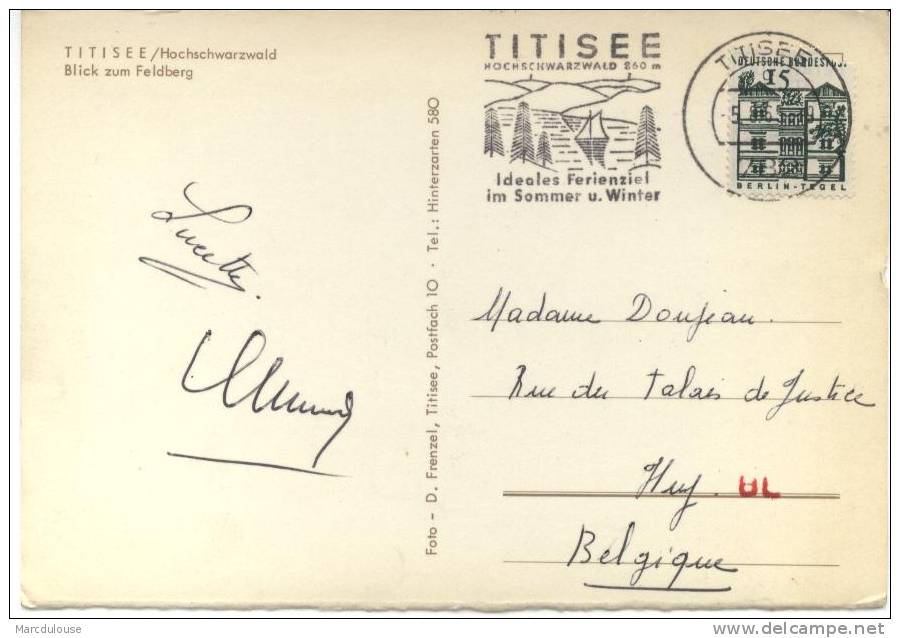 TITISEE/Hochschwarzwald
Blick zum Feldberg
Lucette.
Foto – D. Frenzel, Titisee, Postfach 10 · Tel.: Hinterzarten 580
TITISEE
HOCHSCHWARZWALD 860 m
Ideales Ferienziel
im Sommer u. Winter
TITISEE
DEUTSCHE BUNDESPOST
15
BERLIN-TEGEL
Madame Doujean.
Rue du Palais de Justice
Huy.
Belgique
Marcdulouse
http://www.delcampe.net